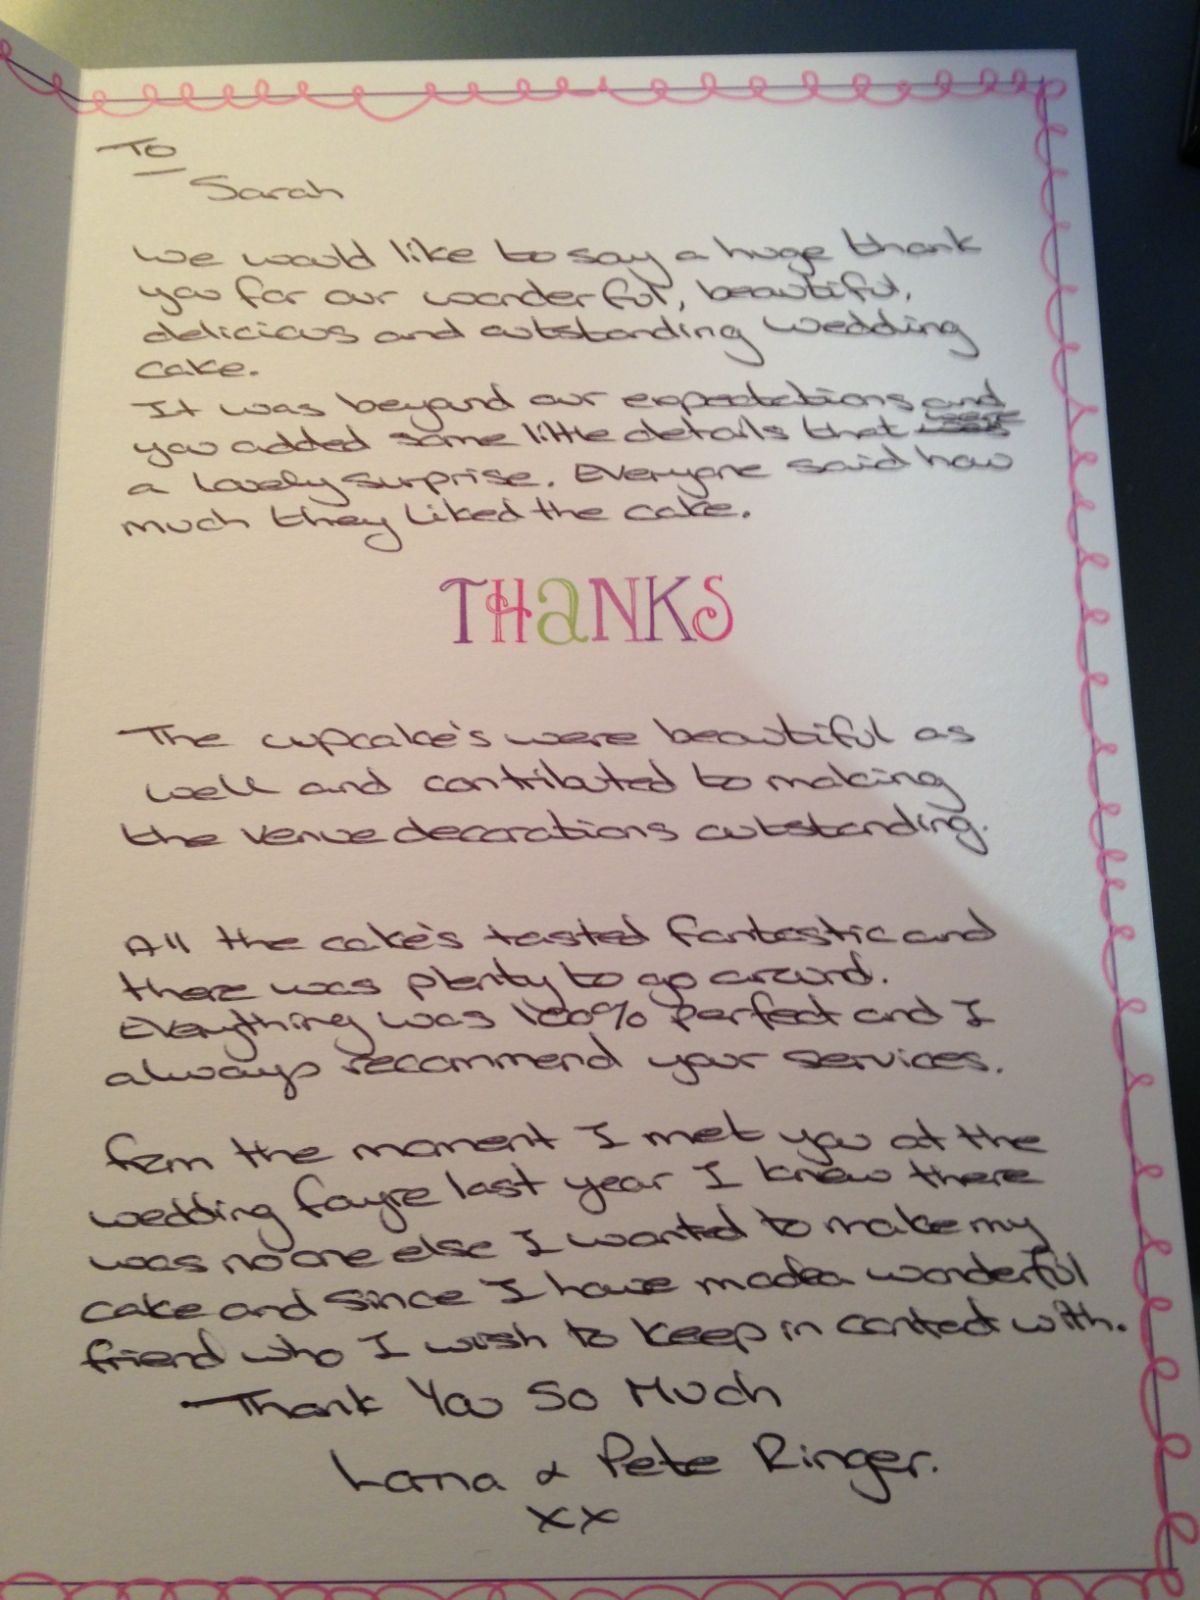 To
Sarah
We would like to say a huge thank
you for our wonderful, beautiful,
delicious and outstanding wedding
cake.
It was beyond our expectations and
you added some little details that were
a lovely surprise. Everyone said how
much they liked the cake.
THANKS
The cupcake's were beautiful as
well and contributed to making
the venue decorations outstanding.
All the cake's tasted fantastic and
there was plenty to go around.
Everything was 100% perfect and I
always recommend your services.
from the moment I met you at the
wedding fayre last year I knew there
was no one else I wanted to make my
cake and since I have made a wonderful
friend who I wish to keep in contact with.
Thank You So Much
Lorna & Pete Ringer.
xx